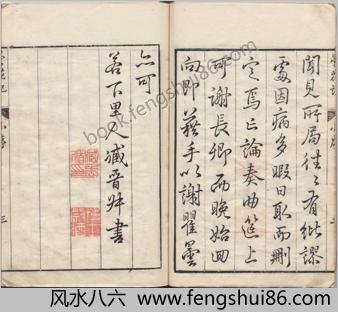 聞見所局往〻有紕謬
處因病多暇日取而刪
定焉亡論奏曲筵上
可謝長卿而晚始回
向即藉手以謝瞿曇
亦可
若下里人臧晉叔書
小序
三
book.fengshui86.com
风水八六 www.fengshui86.com